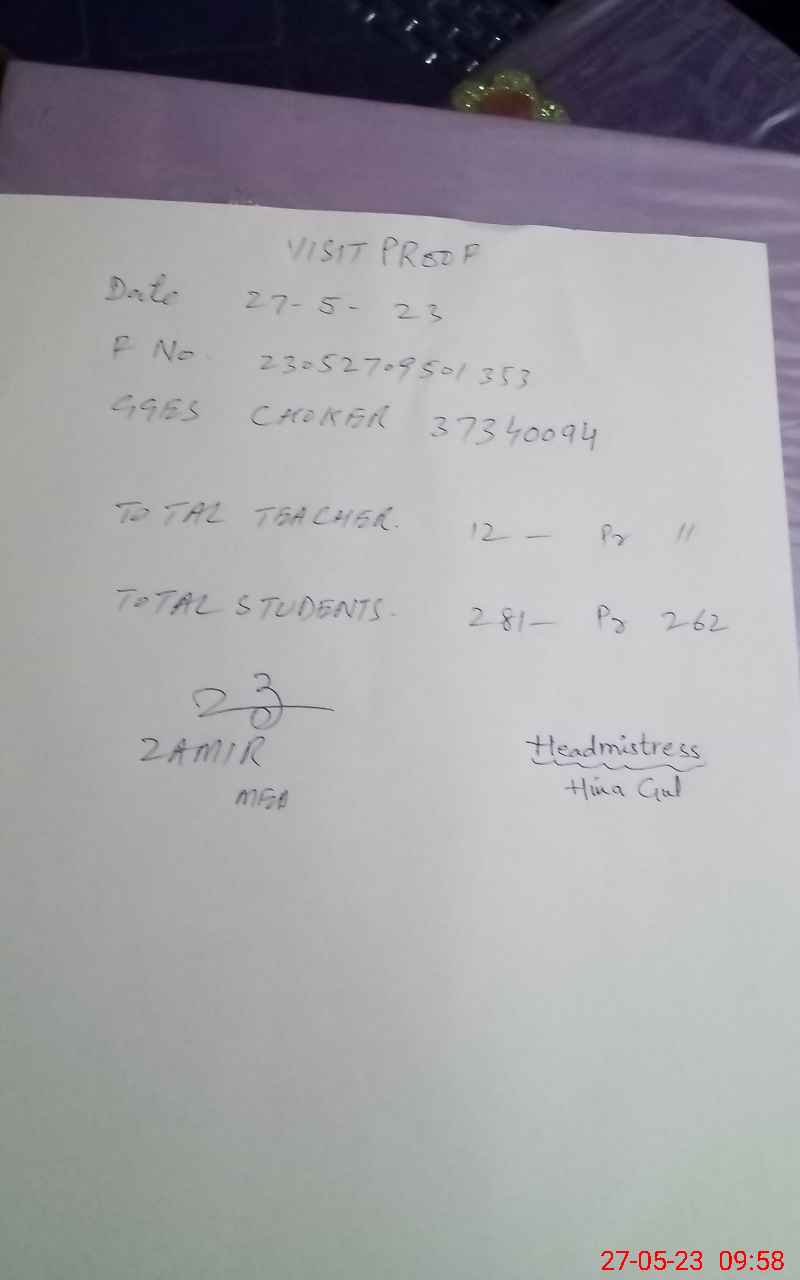 VISIT PROOF
Date 27-5-23
F No. 23052709501353
GGES CHOKER 37340094
TOTAL TEACHER. 12 - Pr 11
TOTAL STUDENTS. 281- Pr 262
ZAMIR
MEA
Headmistress
Hina Gul
27-05-23 09:58